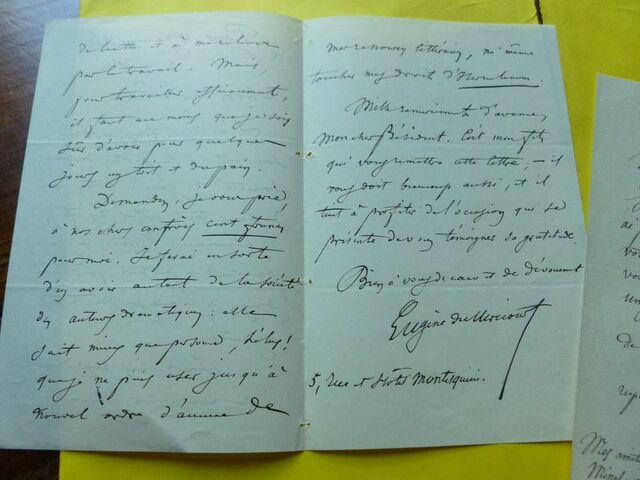 de lutte et à me relever
par le travail. Mais,
pour travailler efficacement,
il faut au moins que je sois
sûr d'avoir pour quelques
jours un toit et du pain.
Demandez, je vous prie,
à nos chers confrères cent francs
pour moi. Je ferai en sorte
d'en avoir autant de la société
des auteurs dramatiques : elle
sait mieux que personne, hélas !
que je ne puis user jusqu'à
nouvel ordre d'aucune de
mes ressources littéraires, ni même
toucher mes droits d'
Mille remerciements d'avance,
Mon cher Président. C'est mon fils
qui vous remettra cette lettre ; — il
vous doit beaucoup aussi, et il
tient à profiter de l'occasion qui se
présente de vous témoigner sa gratitude.
Bien à vous de cœur et de dévouement
Eugène de Mirecourt
5, rue et hôtel Montesquieu.
de
Mes